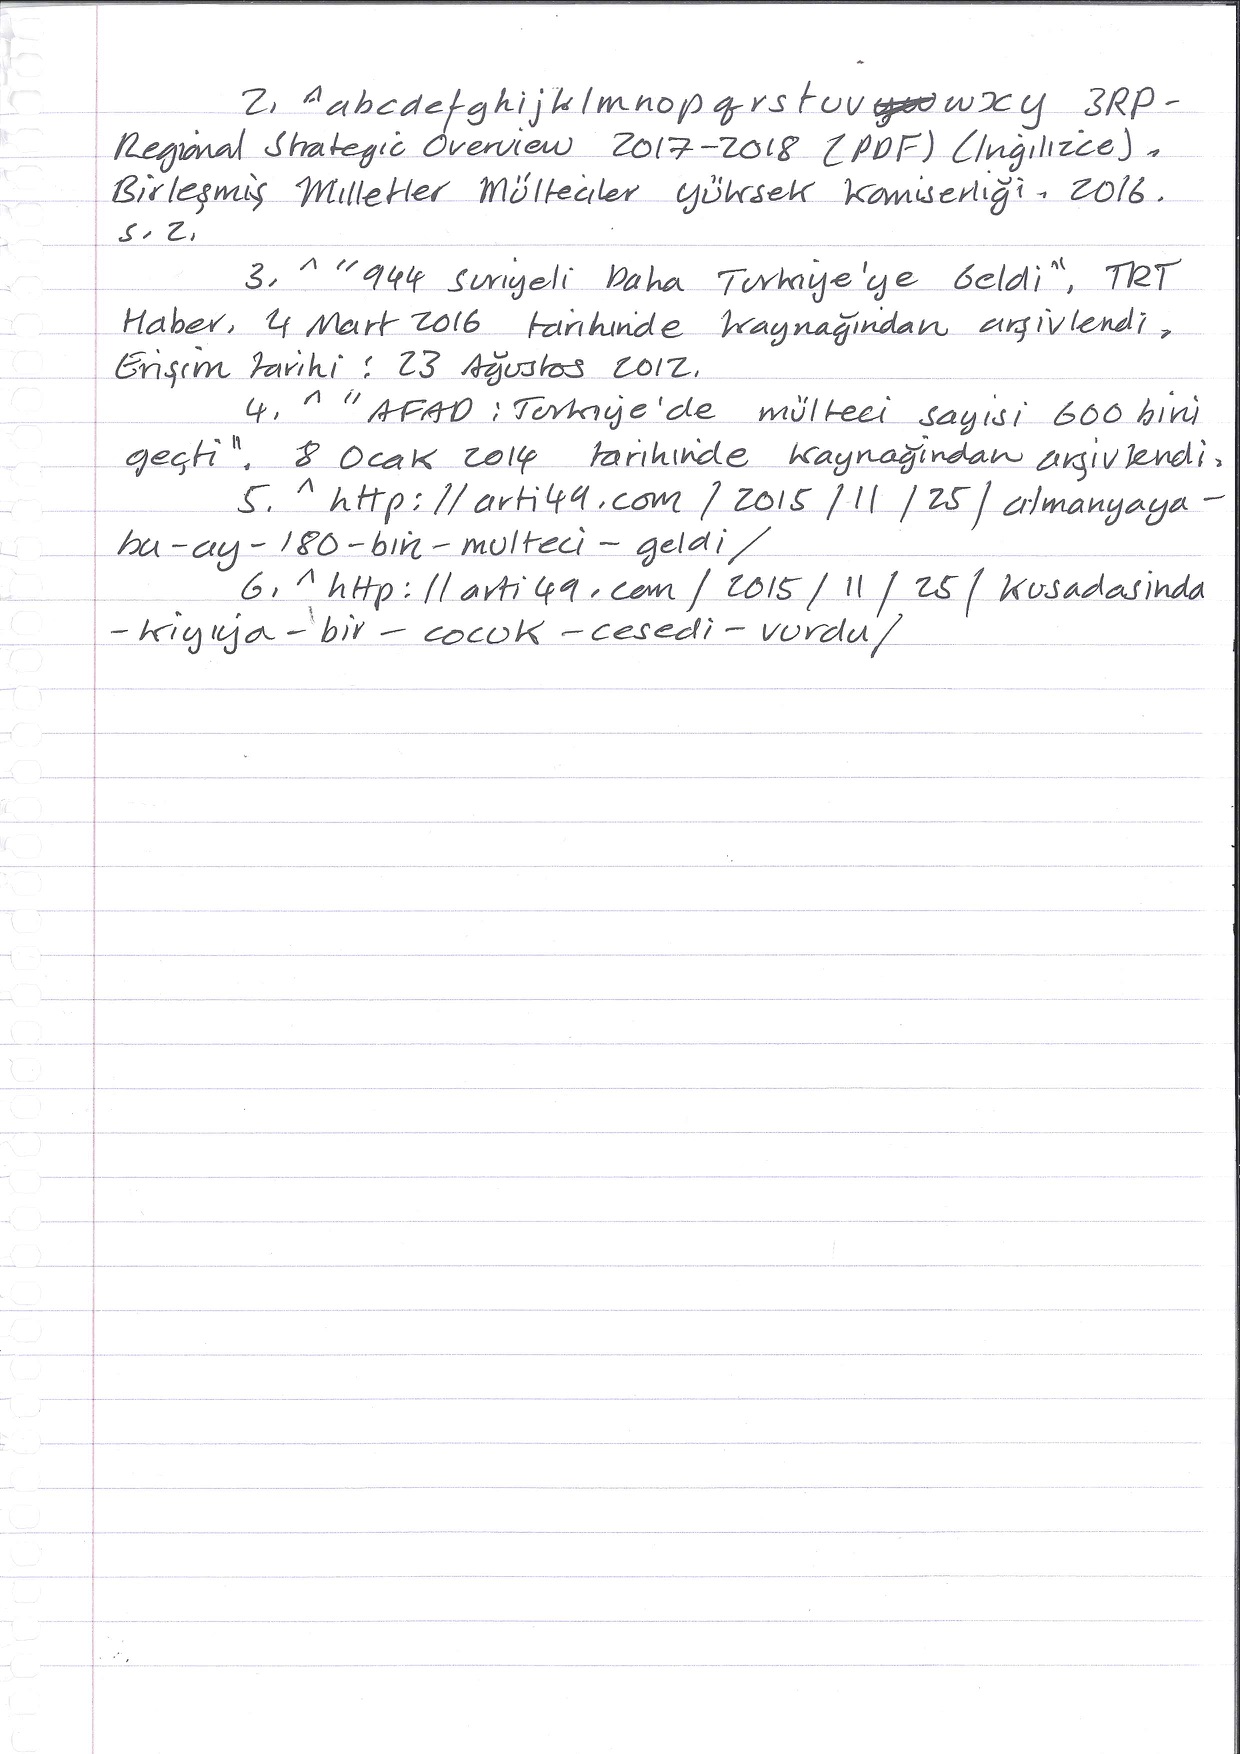 2. ^ abcdefghijklmnopqrstuv wxy 3RP-
Regional Strategic Overview 2017-2018 (PDF) (İngilizce).
Birleşmiş Milletler Mülteciler Yüksek Komiserliği. 2016.
s. 2.
3. ^ "944 Suriyeli Daha Türkiye'ye Geldi". TRT
Haber. 4 Mart 2016 tarihinde kaynağından arşivlendi.
Erişim tarihi : 23 Ağustos 2012.
4. ^ "AFAD : Türkiye'de mülteci sayisi 600 bini
geçti". 8 Ocak 2014 tarihinde kaynağından arşivlendi.
5. ^ http://arti49.com/2015/11/25/almanyaya-
bu-ay-180-bin-multeci-geldi/
6. ^ http://arti49.com/2015/11/25/kusadasinda
-kiyiya-bir-cocuk-cesedi-vurdu/